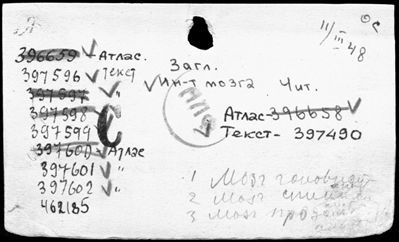 11/III 48
396659 - Атлас.
397596 Текст
397597 "
397598
397599
397600 - Атлас
397601 "
397602 "
462185
Загл.
Ин-т мозга Чит.
Атлас - 396658
Текст - 397490
1 Мозг
2 Мозг
3 Мозг